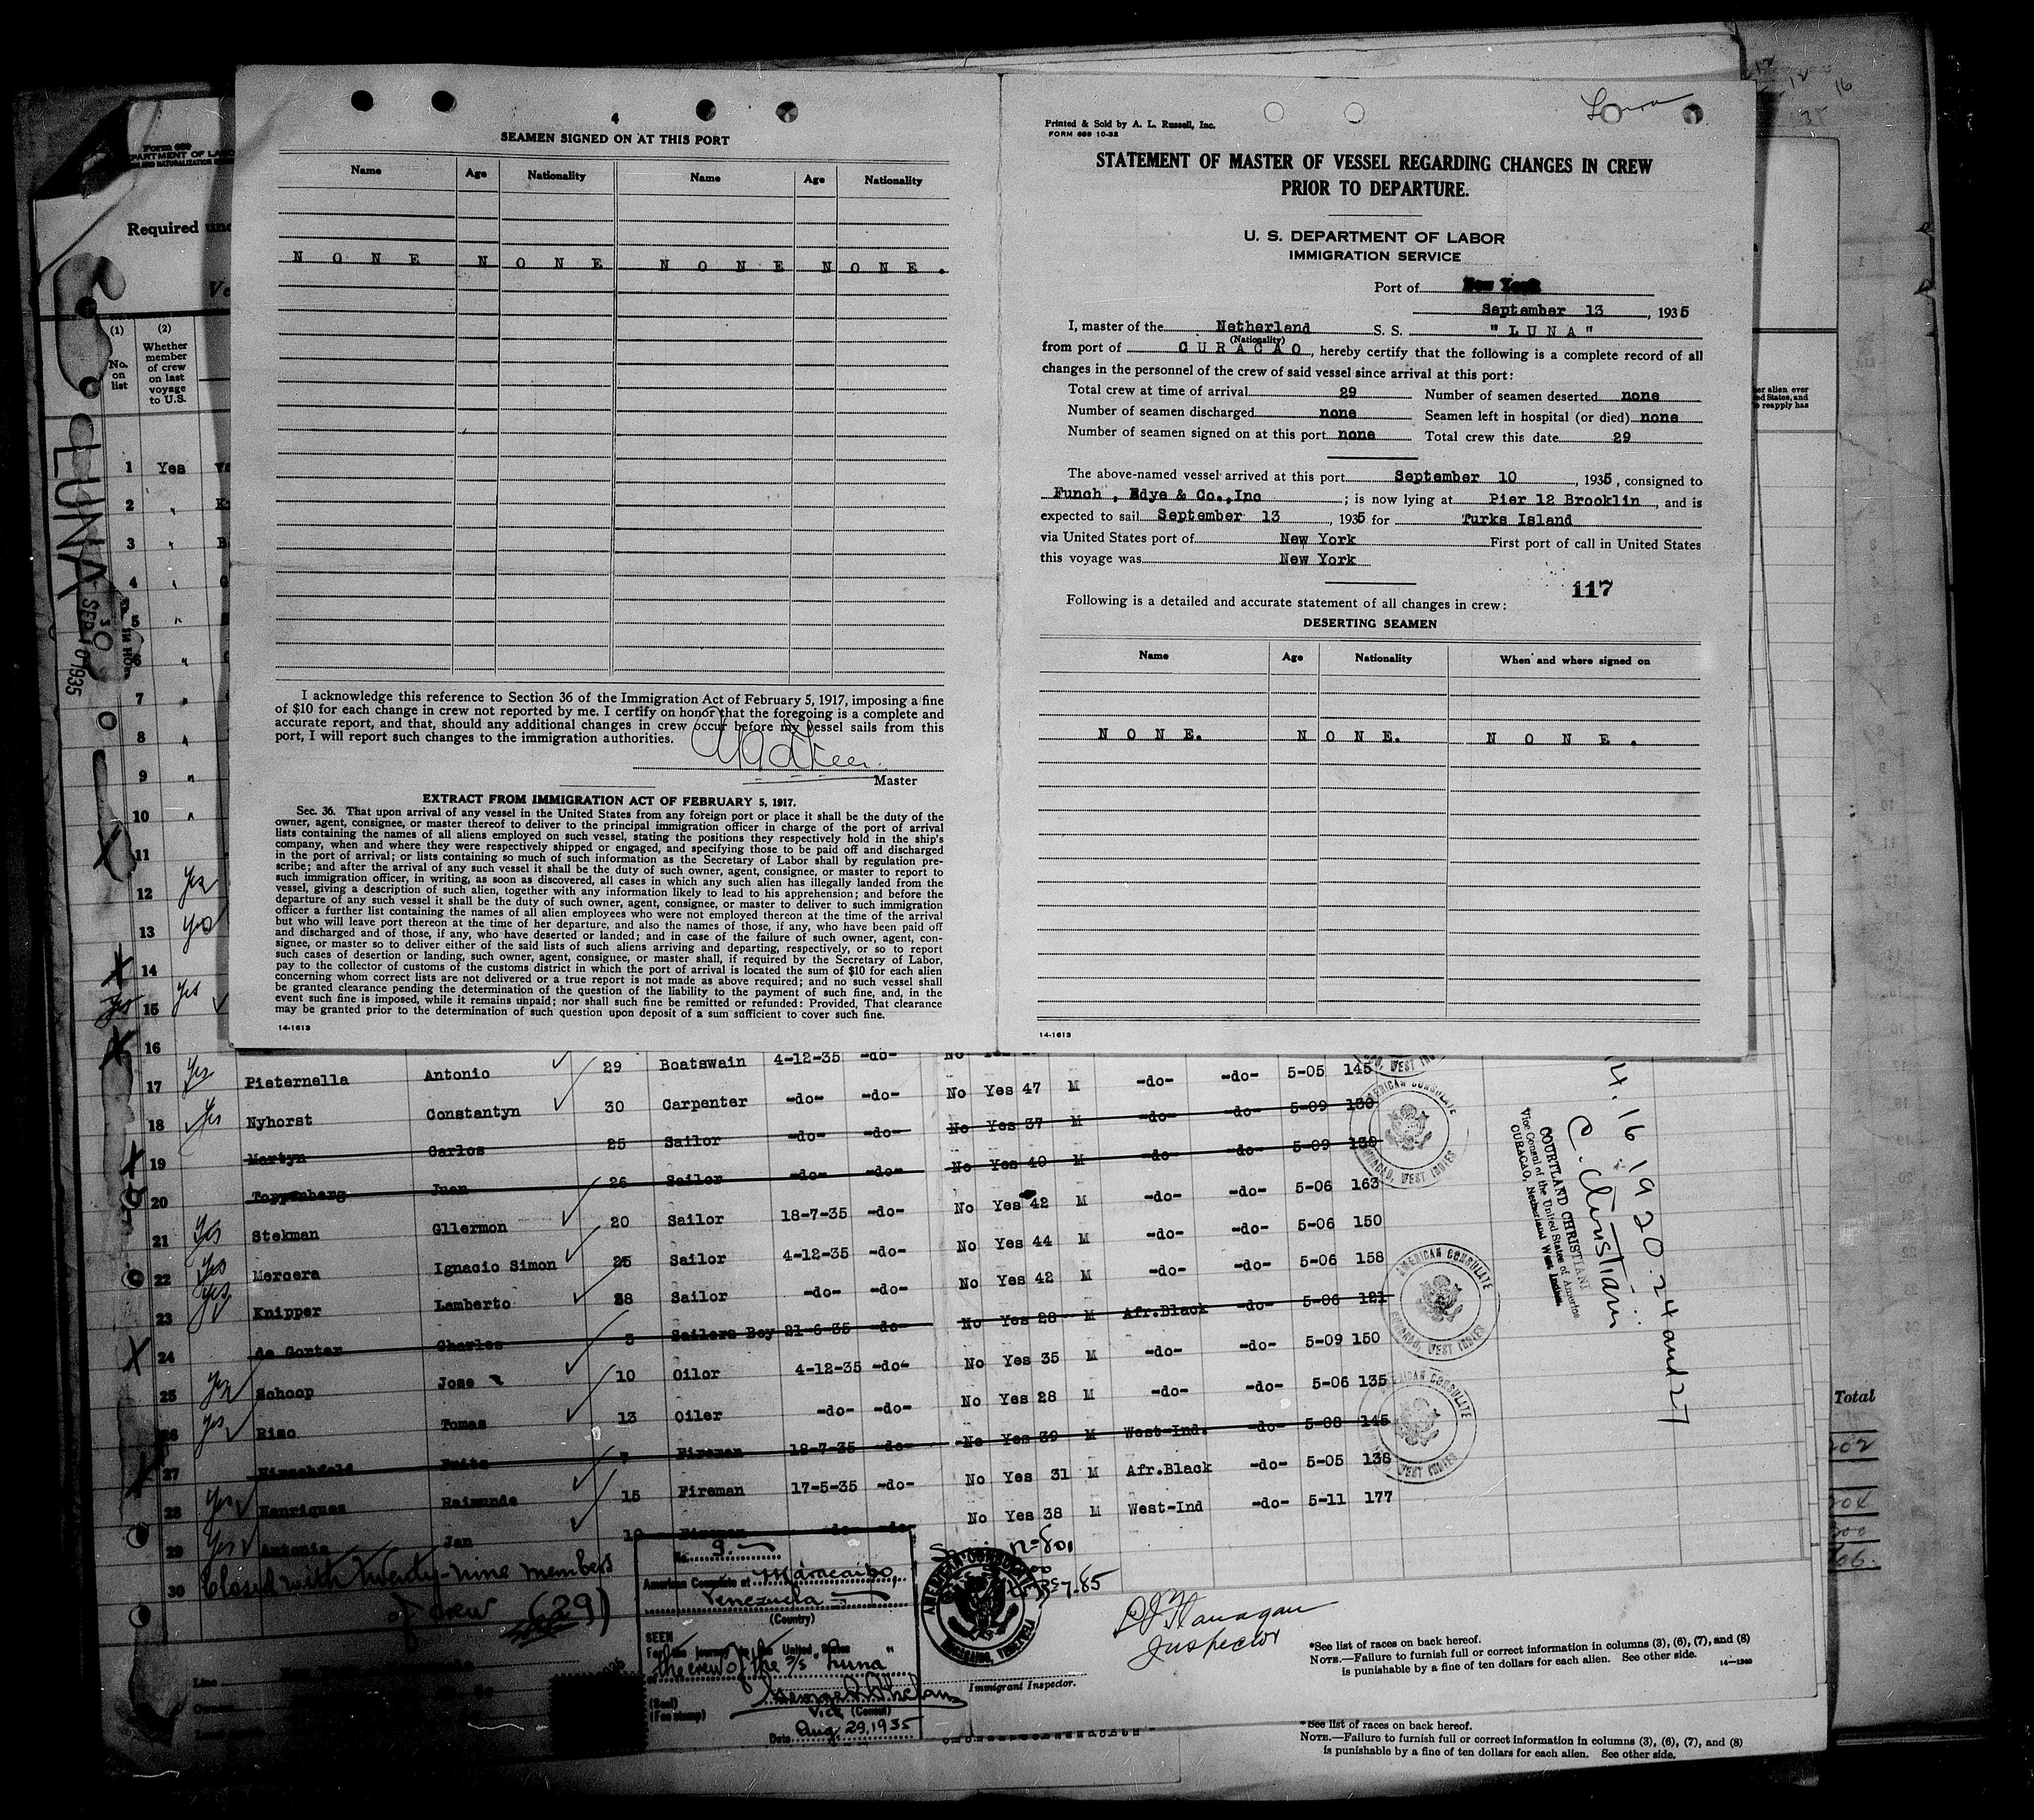 4
SEAMEN SIGNED ON AT THIS PORT
Name Age Nationality Name Age Nationality
N O N E N O N E N O N E N O N E .
I acknowledge this reference to Section 36 of the Immigration Act of February 5, 1917, imposing a fine
of $10 for each change in crew not reported by me. I certify on honor that the foregoing is a complete and
accurate report, and that, should any additional changes in crew occur before my vessel sails from this
port, I will report such changes to the immigration authorities.
Master
EXTRACT FROM IMMIGRATION ACT OF FEBRUARY 5, 1917.
Sec. 36. That upon arrival of any vessel in the United States from any foreign port or place it shall be the duty of the
owner, agent, consignee, or master thereof to deliver to the principal immigration officer in charge of the port of arrival
lists containing the names of all aliens employed on such vessel, stating the positions they respectively hold in the ship's
company, when and where they were respectively shipped or engaged, and specifying those to be paid off and discharged
in the port of arrival; or lists containing so much of such information as the Secretary of Labor shall by regulation pre-
scribe; and after the arrival of any such vessel it shall be the duty of such owner, agent, consignee, or master to report to
such immigration officer, in writing, as soon as discovered, all cases in which any such alien has illegally landed from the
vessel, giving a description of such alien, together with any information likely to lead to his apprehension; and before the
departure of any such vessel it shall be the duty of such owner, agent, consignee, or master to deliver to such immigration
officer a further list containing the names of all alien employees who were not employed thereon at the time of the arrival
but who will leave port thereon at the time of her departure, and also the names of those, if any, who have been paid off
and discharged and of those, if any, who have deserted or landed; and in case of the failure of such owner, agent, con-
signee, or master so to deliver either of the said lists of such aliens arriving and departing, respectively, or so to report
such cases of desertion or landing, such owner, agent, consignee, or master shall, if required by the Secretary of Labor,
pay to the collector of customs of the customs district in which the port of arrival is located the sum of $10 for each alien
concerning whom correct lists are not delivered or a true report is not made as above required; and no such vessel shall
be granted clearance pending the determination of the question of the liability to the payment of such fine, and, in the
event such fine is imposed, while it remains unpaid; nor shall such fine be remitted or refunded: Provided, That clearance
may be granted prior to the determination of such question upon deposit of a sum sufficient to cover such fine.
14-1613
Luna
Printed & Sold by A. L. Russell, Inc.
FORM 689 10-32
STATEMENT OF MASTER OF VESSEL REGARDING CHANGES IN CREW
PRIOR TO DEPARTURE.
U. S. DEPARTMENT OF LABOR
IMMIGRATION SERVICE
Port of New York
September 13, 1935
I, master of the Netherland S. S. "LUNA"
(Nationality)
from port of CURACAO, hereby certify that the following is a complete record of all
changes in the personnel of the crew of said vessel since arrival at this port:
Total crew at time of arrival 29 Number of seamen deserted none
Number of seamen discharged none Seamen left in hospital (or died) none
Number of seamen signed on at this port none Total crew this date 29
The above-named vessel arrived at this port September 10, 1935, consigned to
Funch, Edye & Co.,Inc; is now lying at Pier 12 Brooklin, and is
expected to sail September 13, 1935 for Turks Island
via United States port of New York First port of call in United States
this voyage was New York
117
Following is a detailed and accurate statement of all changes in crew:
DESERTING SEAMEN
Name Age Nationality When and where signed on
N O N E. N O N E. N O N E .
14-1613
Required und
(1) (2)
No. on list
Whether member of crew on last voyage to U.S.
LUNA
SEP 10 1935
1 Yes
2
3
4
5
6
7
8
9
10
11
12 Yes
13 Yes
14
15 Yes
16 29 Boatswain 4-12-35 -do-
17 Yes Pieternella Antonio 30 Carpenter -do- -do- No Yes 47 M -do- -do- 5-05 145
18 Yes Nyhorst Constantyn 25 Sailor -do- -do- No Yes 37 M -do- -do- 5-09 130
19 Martyn Carlos 26 Sailor -do- -do- No Yes 40 M -do- -do- 5-09 130
20 Toppenberg Juan 20 Sailor 18-7-35 -do- No Yes 42 M -do- -do- 5-06 163
21 Yes Stekman Gllermon 25 Sailor 4-12-35 -do- No Yes 44 M -do- -do- 5-06 150
22 Yes Mercera Ignacio Simon 28 Sailor -do- -do- No Yes 42 M -do- -do- 5-06 158
23 Yes Knipper Lamberto 3 Sailors Boy 21-6-35 -do- No Yes 28 M Afr.Black -do- 5-06 121
24 de Gorter Charles 10 Oiler 4-12-35 -do- No Yes 35 M -do- -do- 5-09 150
25 Yes Schoop Jose 13 Oiler -do- -do- No Yes 28 M -do- -do- 5-06 135
26 Yes Riso Tomas 7 Fireman 18-7-35 -do- No Yes 39 M West-Ind. -do- 5-08 145
27 Hirschfeld 15 Fireman 17-5-35 -do- No Yes 31 M Afr.Black -do- 5-05 138
28 Yes Henriques Raimundo 10 Fireman -do- -do- No Yes 38 M West-Ind -do- 5-11 177
29 Yes Antonia Jan
30 Closed with twenty-nine members
of crew (29)
14. 16 19 20. 24 and 27
C. Christiani
COURTLAND CHRISTIANI
Vice Consul of the United States of America
CURACAO, Netherland West Indies
AMERICAN CONSULATE
CURACAO, WEST INDIES
No. 9.
American Consulate at Maracaibo,
Venezuela
(Country)
SEEN
For the journey to the United States
the crew of the S/S "Luna"
(Seal)
(Fee stamp)
Vice (Consul)
Date Aug 29, 1935
AMERICAN CONSULATE
MARACAIBO, VENEZUELA
D J Flanagan
Inspector
Immigrant Inspector.
*See list of races on back hereof.
NOTE.—Failure to furnish full or correct information in columns (3), (6), (7), and (8)
is punishable by a fine of ten dollars for each alien. See other side.
*See list of races on back hereof.
NOTE.—Failure to furnish full or correct information in columns (3), (6), (7), and (8)
is punishable by a fine of ten dollars for each alien. See other side.
Total